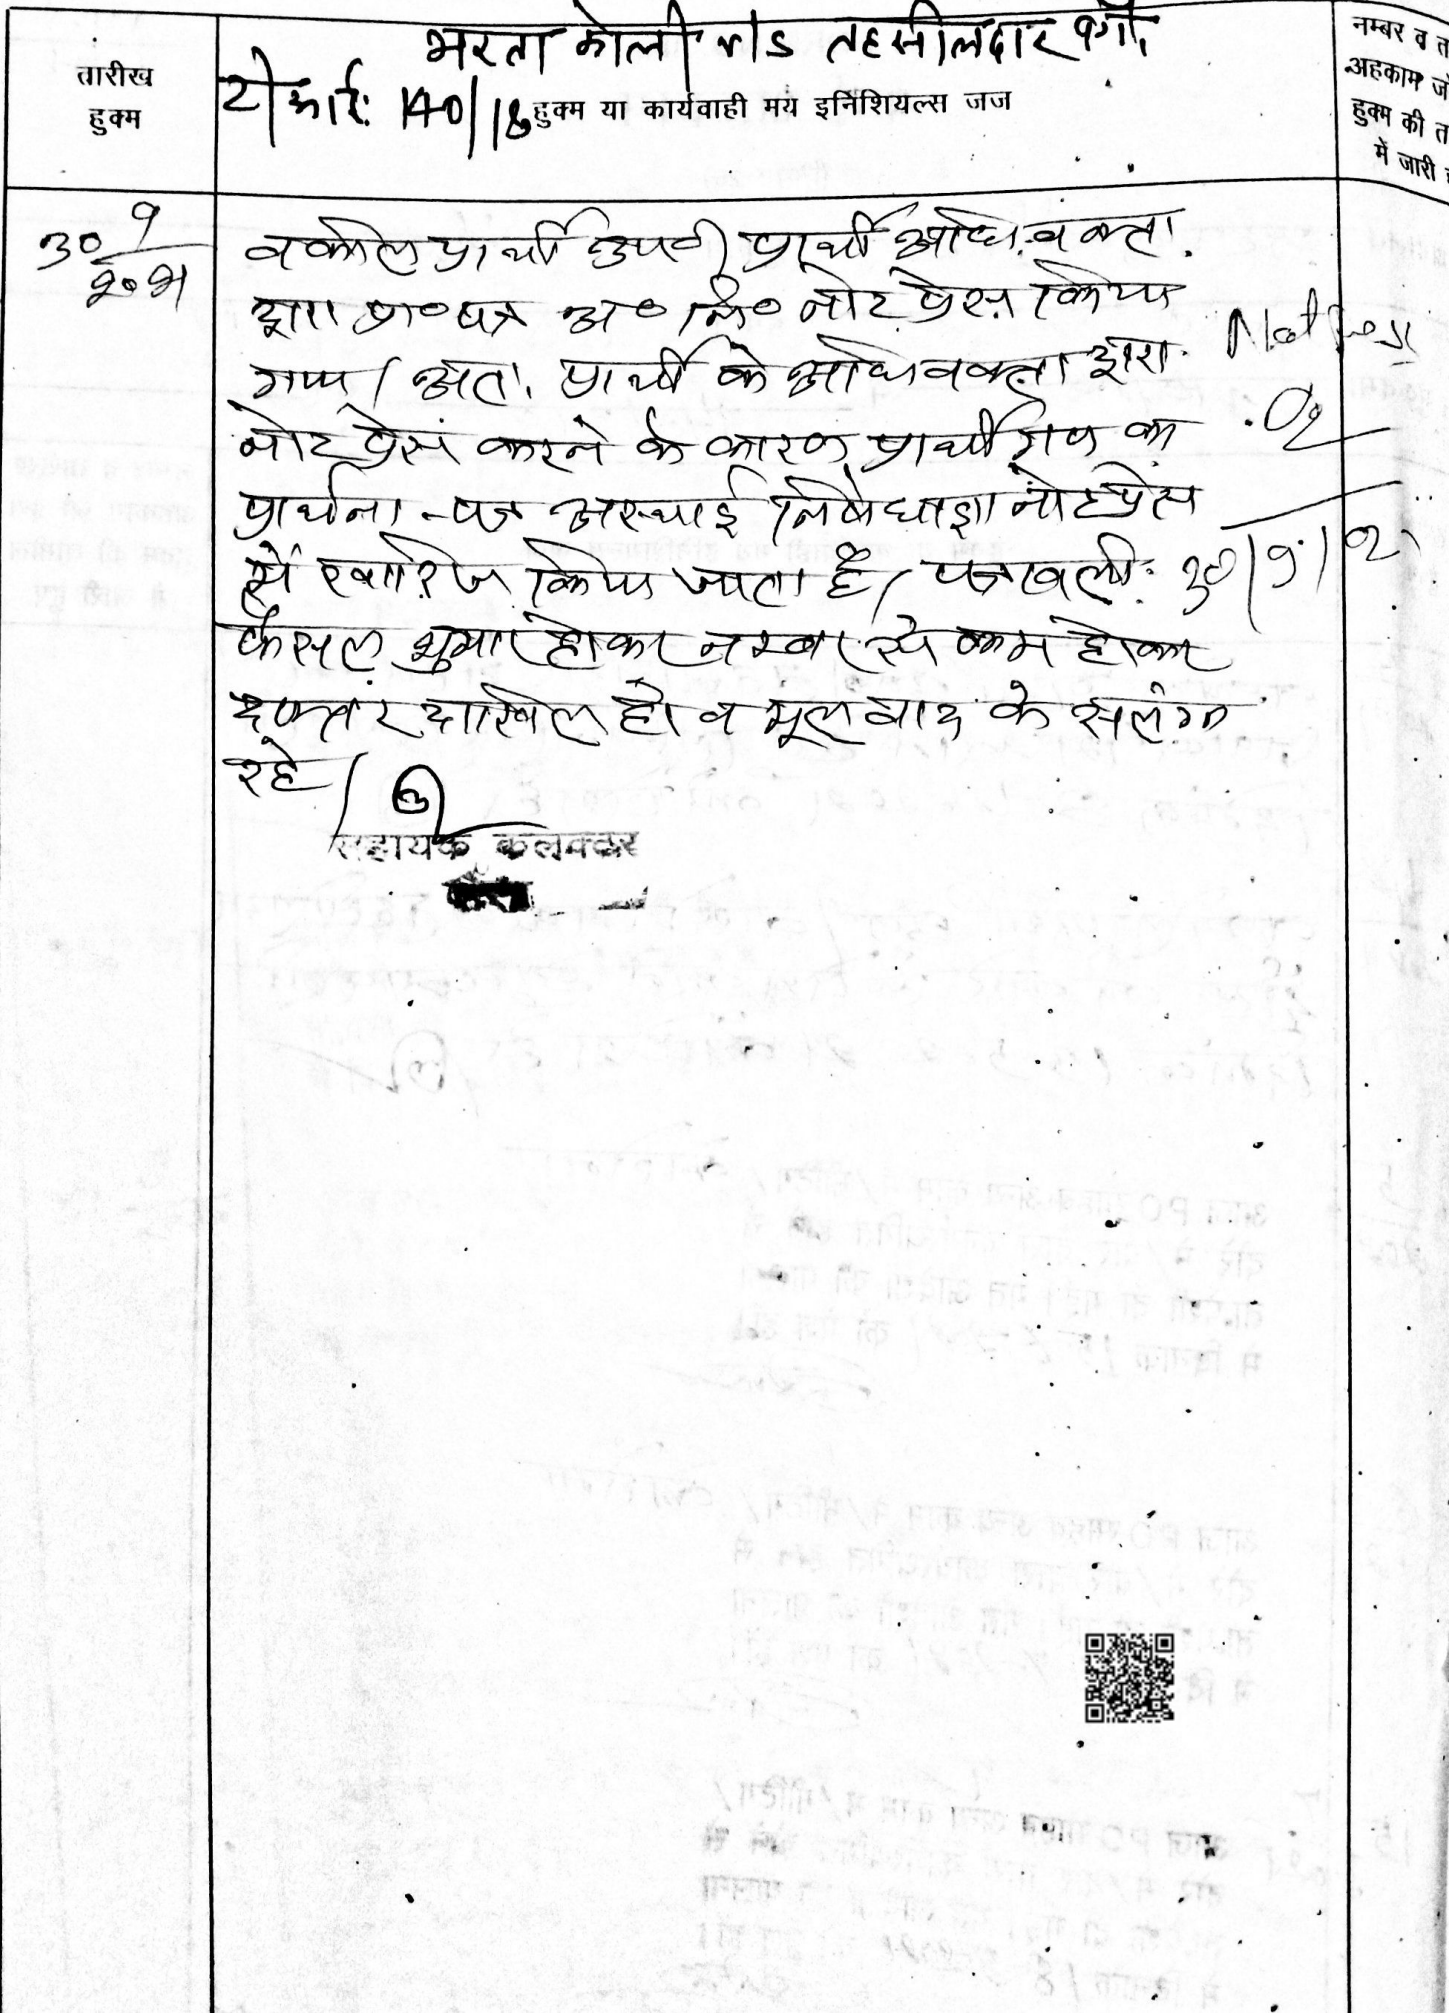 भरता कोली v/s तहसीलदार वगै.
तारीख
हुक्म
टी आई. 140/18 हुक्म या कार्यवाही मय इनिशियल्स जज
नम्बर व त
अहकाम ज
हुक्म की त
में जारी
30/9
वकील प्रार्थी उप0 प्रार्थी अधिवक्ता
द्वारा प्रा0 पत्र अ0 नि0 नोट प्रेस किया
गया। अतः प्रार्थी के अधिवक्ता द्वारा
नोट प्रेस करने के कारण प्रार्थीगण का
प्रार्थना-पत्र अस्थाई निषेधाज्ञा नोट प्रेस
में खारिज किया जाता है। पत्रावली
फैसल शुमार होकर नम्बर से कम होकर
दफ्तर दाखिल हो व मूल वाद के सलंग्न
रहे।
Not Press
30/9/
सहायक कलक्टर